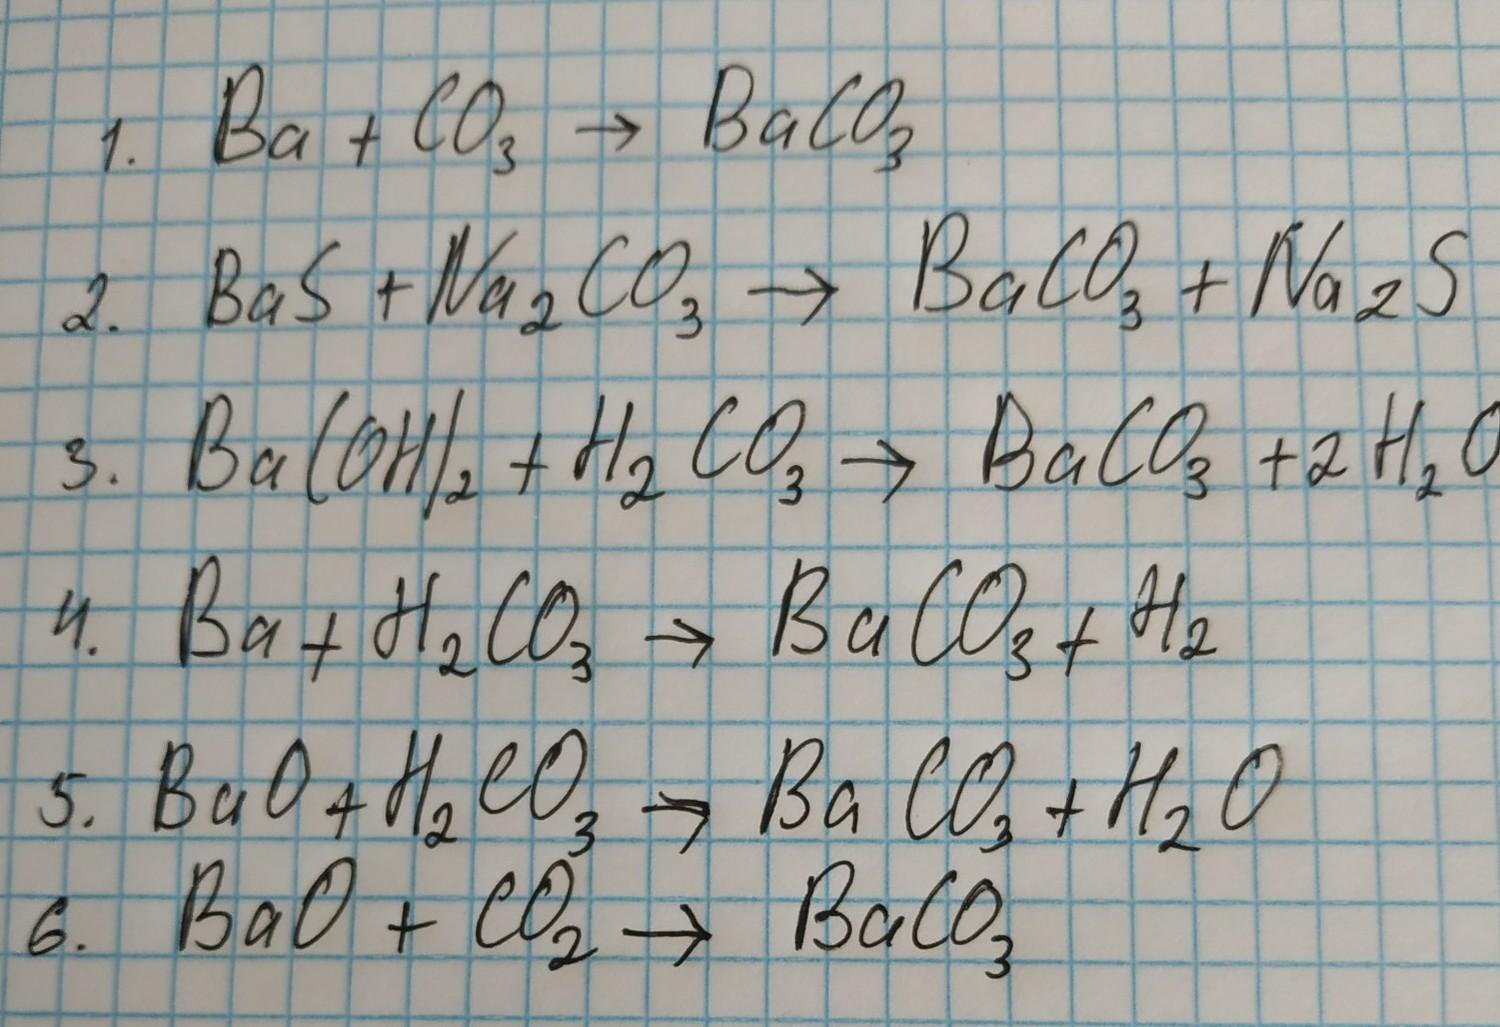 1. Ba + CO₃ → BaCO₃
2. BaS + Na₂CO₃ → BaCO₃ + Na₂S
3. Ba(OH)₂ + H₂CO₃ → BaCO₃ + 2H₂O
4. Ba + H₂CO₃ → BaCO₃ + H₂
5. BaO + H₂CO₃ → BaCO₃ + H₂O
6. BaO + CO₂ → BaCO₃